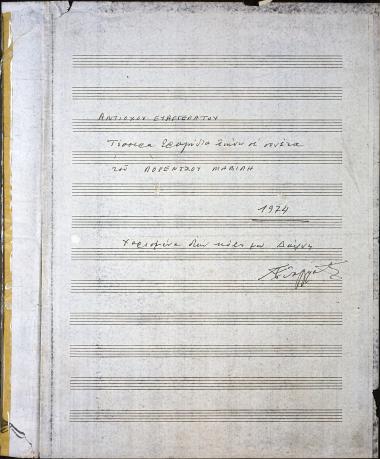 ΑΝΤΙΟΧΟΥ ΕΥΑΓΓΕΛΑΤΟΥ
Τέσσερα τραγούδια πάνω σε σονέτα
τοῦ ΛΟΡΕΝΤΖΟΥ ΜΑΒΙΛΗ
1974
Χαρισμένα στην κόρη μου Δάφνη